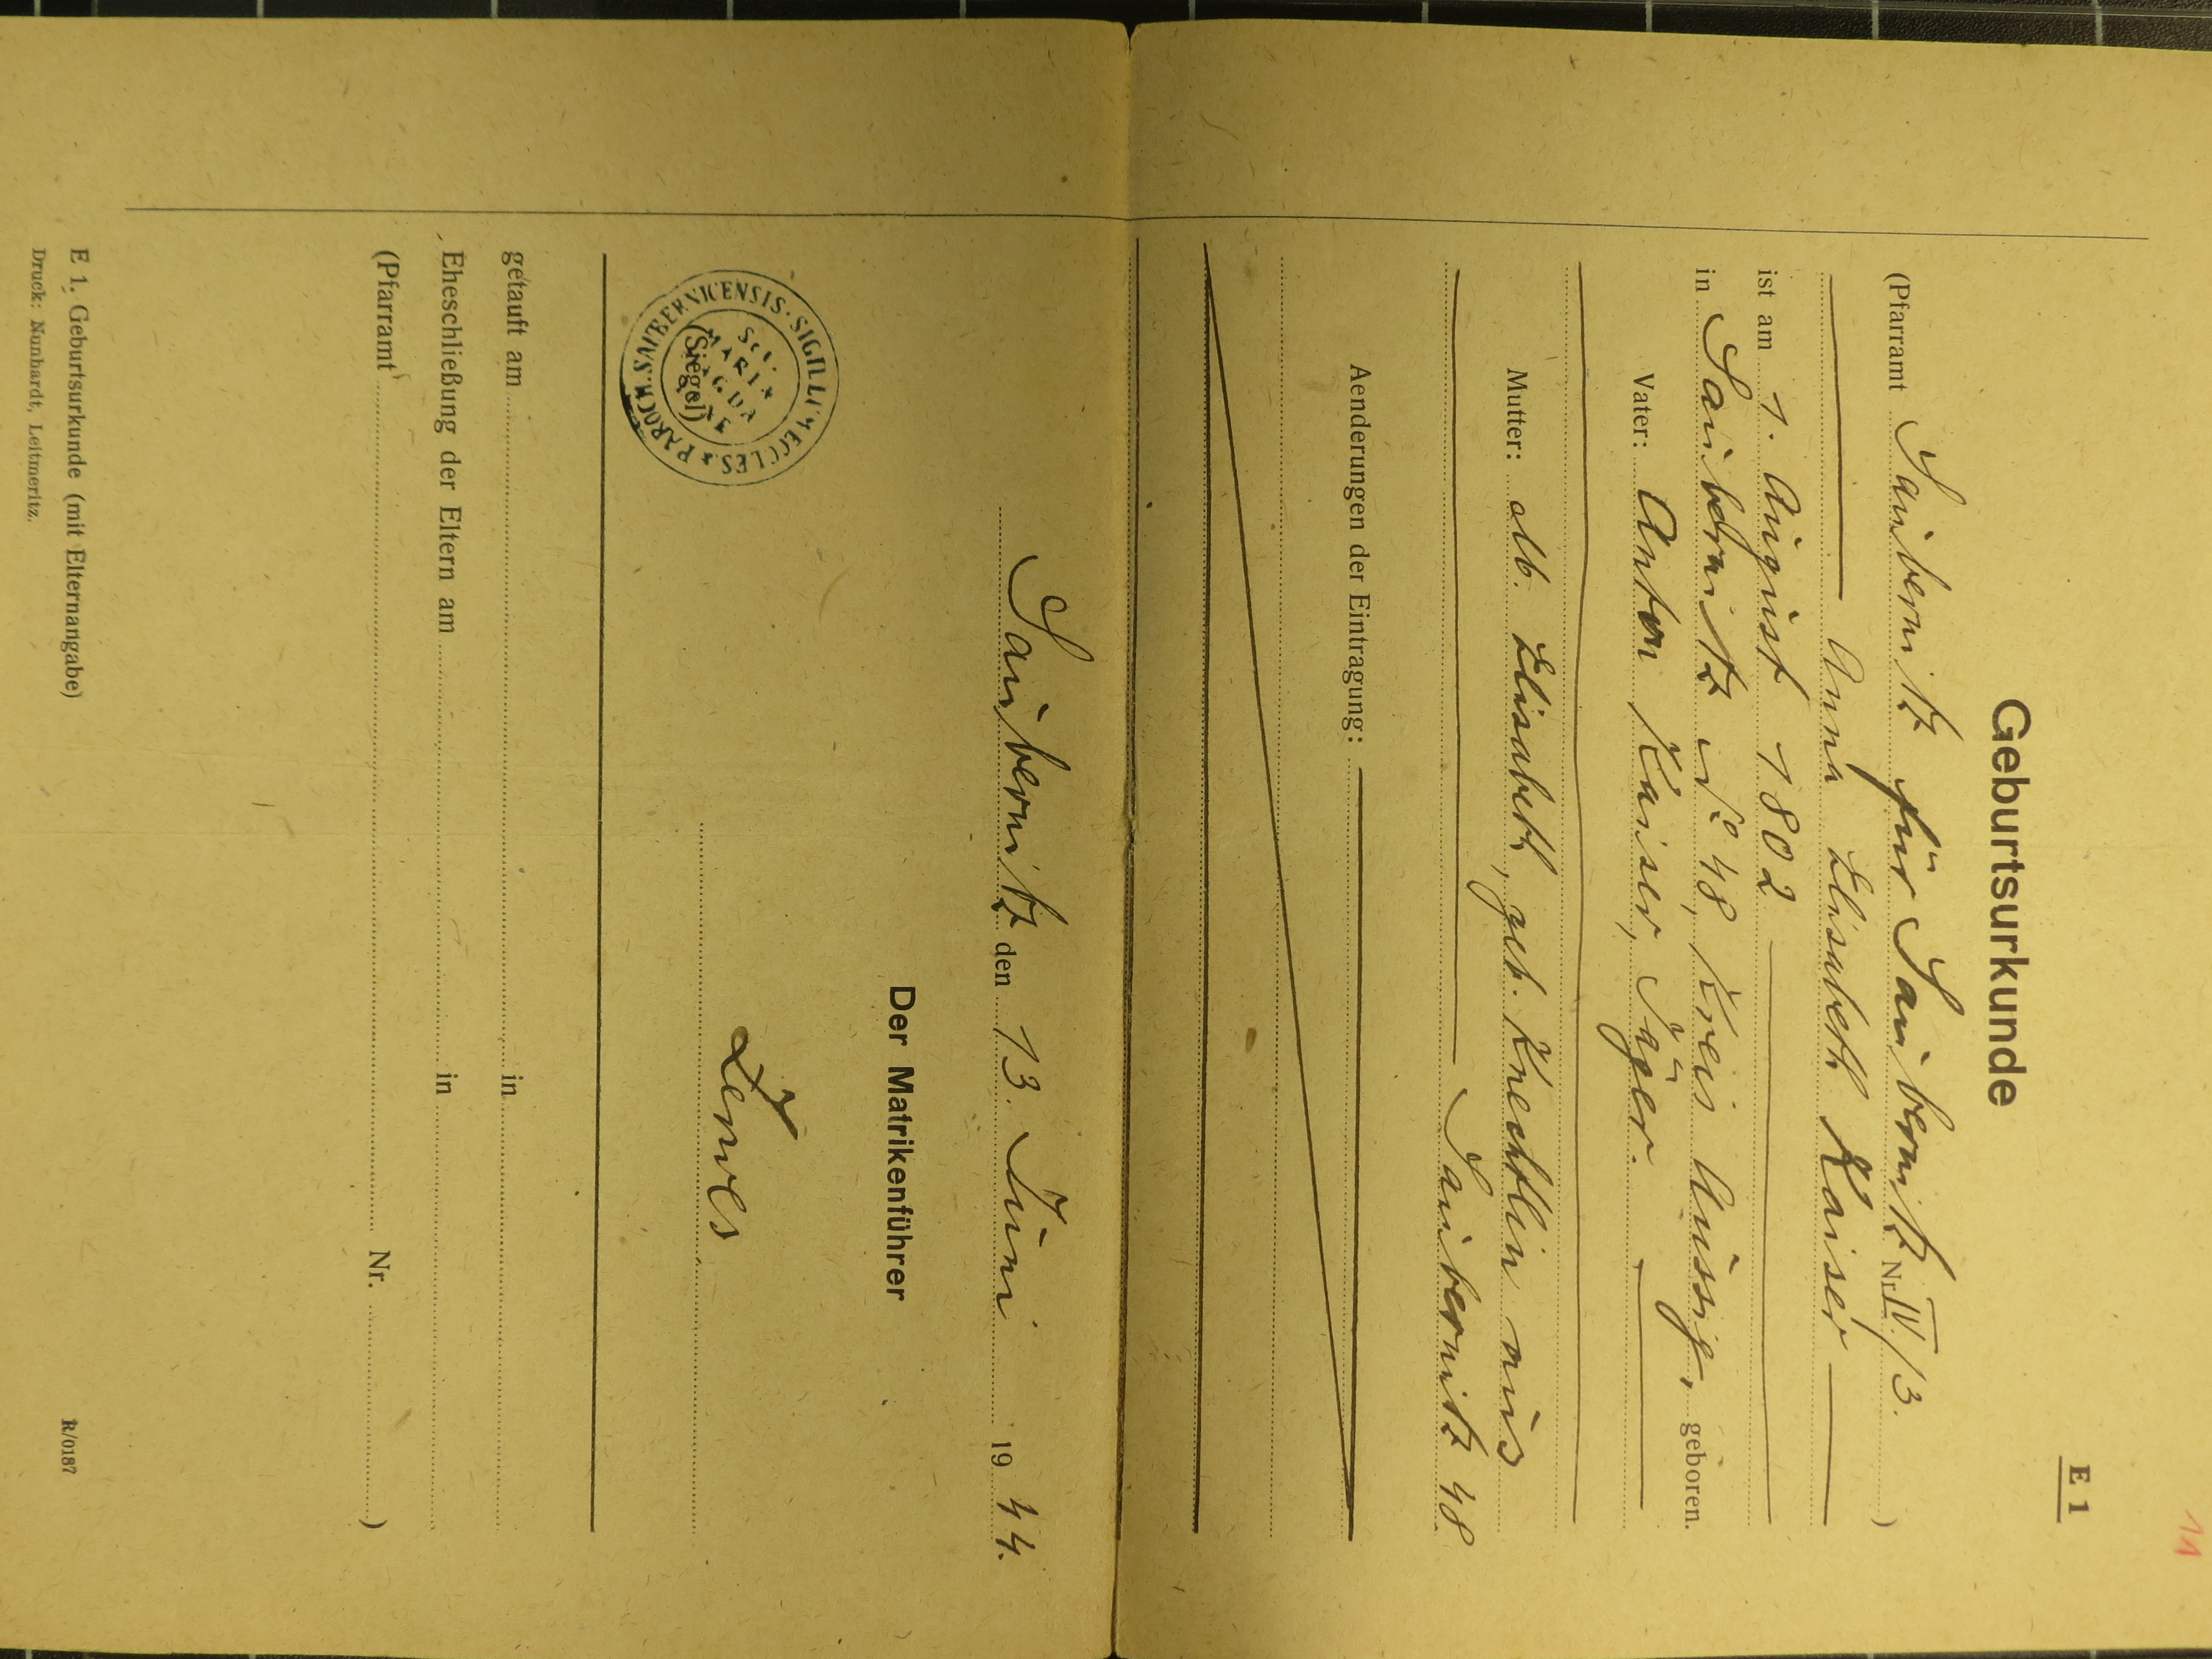 11
E 1
Geburtsurkunde
(Pfarramt Saubernitz für Saubernitz Nr IV./3. )
Anna Elisabeth Kaiser
ist am 1. August 1802
in Saubernitz No 48, Kreis Aussig, geboren.
Vater: Anton Kaiser, Jäger.
Mutter: M. Elisabeth, geb. Knechtlin aus
Saubernitz 48.
Aenderungen der Eintragung:
Saubernitz den 13. Juni 19 44.
Der Matrikenführer
SIGILLUM ECCLES. & PAROCH. SAUBERNICENSIS
Sct.
MARIA
MAGDA
(Siegel)
getauft am in
Eheschließung der Eltern am in
(Pfarramt Nr. )
E 1. Geburtsurkunde (mit Elternangabe) R/0187
Druck: Nunhardt, Leitmeritz.